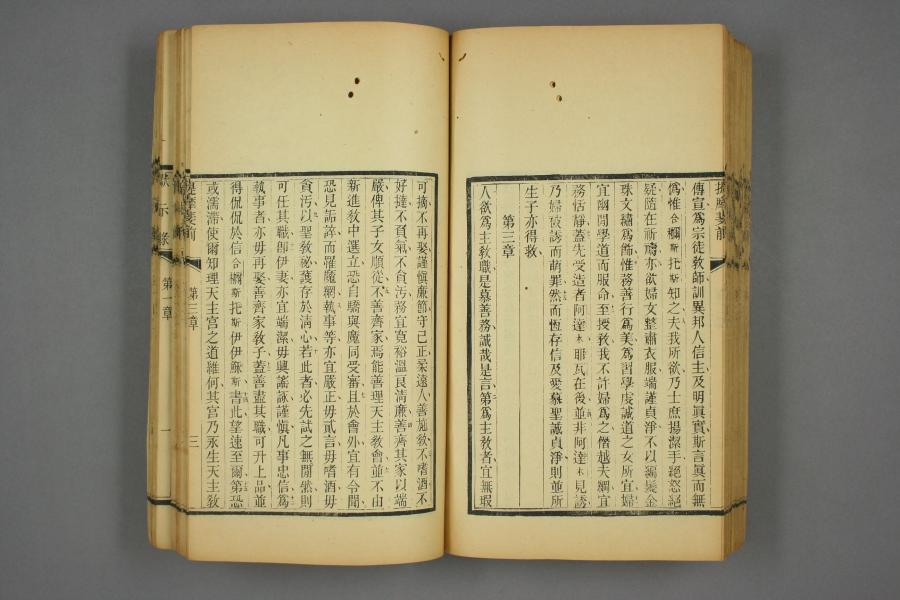 提摩斐前
傳宣爲宗徒敎師訓異邦人信主及明眞實斯言眞而無
僞惟合禰斯托斯知之夫我所欲乃士庶揚潔手絕怒絕
疑隨在祈禱亦欲婦女整肅衣服端謹貞淨不以編髮金
珠文繡爲飾惟務善行爲美爲習學虔誠道之女所宜婦
宜幽閒學道而服命至授敎我不許婦爲之僭越夫綱宜
務恬靜蓋先受造者阿達木耶瓦在後並非阿達木見誘
乃婦被誘而萌罪然而恆存信及愛蘇聖誠貞淨則並所
生子亦得救
第三章
人欲爲主敎職是慕善務誠哉是言第爲主敎者宜無瑕
可摘不再娶謹愼廉節守己正柔遠人善施敎不嗜酒不
好撻不負氣不貪污務宜寬裕溫良淸廉善齊其家以端
嚴俾其子女順從不善齊家焉能善理天主敎會並不由
新進敎中選立恐自驕與魔同受審且於會外宜有令聞
恐見詬誶而罹魔網執事等亦宜嚴正毋貳言毋嗜酒毋
貪污以聖敎祕蘊存於淸心若此者必先試之無閒然則
可任其職卽伊妻亦宜端潔毋興謠諑謹愼凡事忠信爲
執事者亦毋再娶善齊家敎子蓋善盡其職可升上品並
得侃侃於信合禰斯托斯伊伊穌斯書此望速至爾第恐
或濡滯使爾知理天主宮之道維何其宮乃永生天主敎
提摩斐前
第三章
三
默示錄
第一章
一